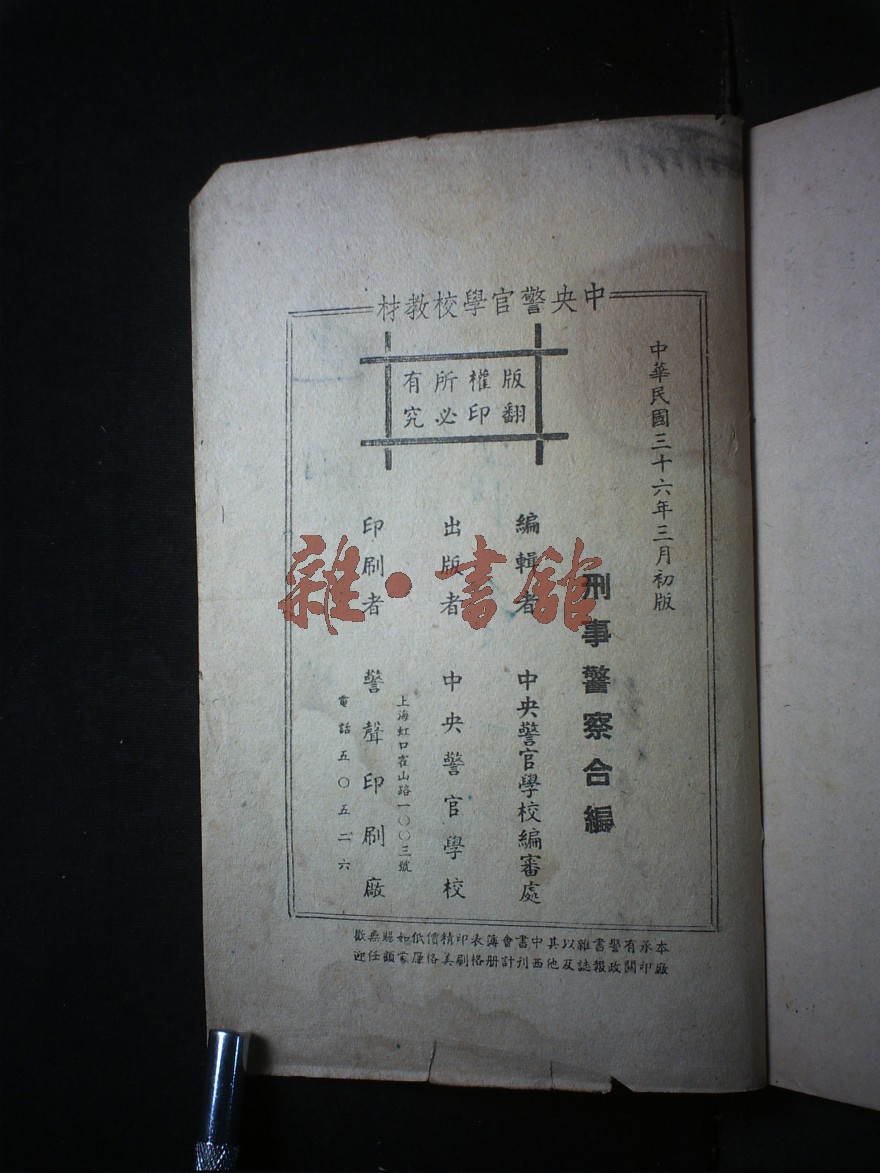 中央警官學校教材
版權所有
翻印必究
中華民國三十六年三月初版
刑事警察合編
編輯者 中央警官學校編審處
出版者 中央警官學校
上海虹口霍山路一〇〇三號
印刷者 警聲印刷廠
電話五〇五二六
本廠承印有關警政書報雜誌以及其他中西書刊會計簿册表格印刷精美價格低廉如蒙賜顧無任歡迎
雜·書館